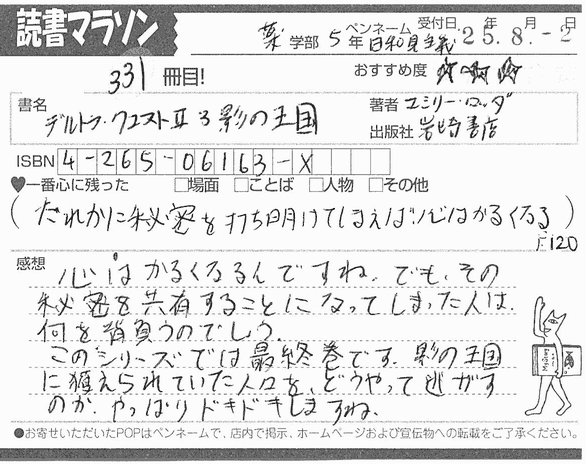 読書マラソン
薬 学部 5年 ペンネーム 日和見主義 受付日 25年 8月 -2日
331 冊目! おすすめ度 ☆☆☆
書名 デルトラ・クエストⅡ 3 影の王国
著者 エミリー・ロッダ
出版社 岩崎書店
ISBN 4-265-06163-X
♥一番心に残った □場面 □ことば □人物 □その他
(だれかに秘密を打ち明けてしまえば心はかるくなる)
P120
感想 心はかるくなるんですね。でも、その
秘密を共有することになってしまった人は、
何を背負うのでしょう。
このシリーズでは最終巻です。影の王国
に捕えられていた人々を、どうやって逃がす
のか、やっぱりドキドキしますね。
●お寄せいただいたPOPはペンネームで、店内で掲示、ホームページおよび宣伝物への転載をご了承ください。